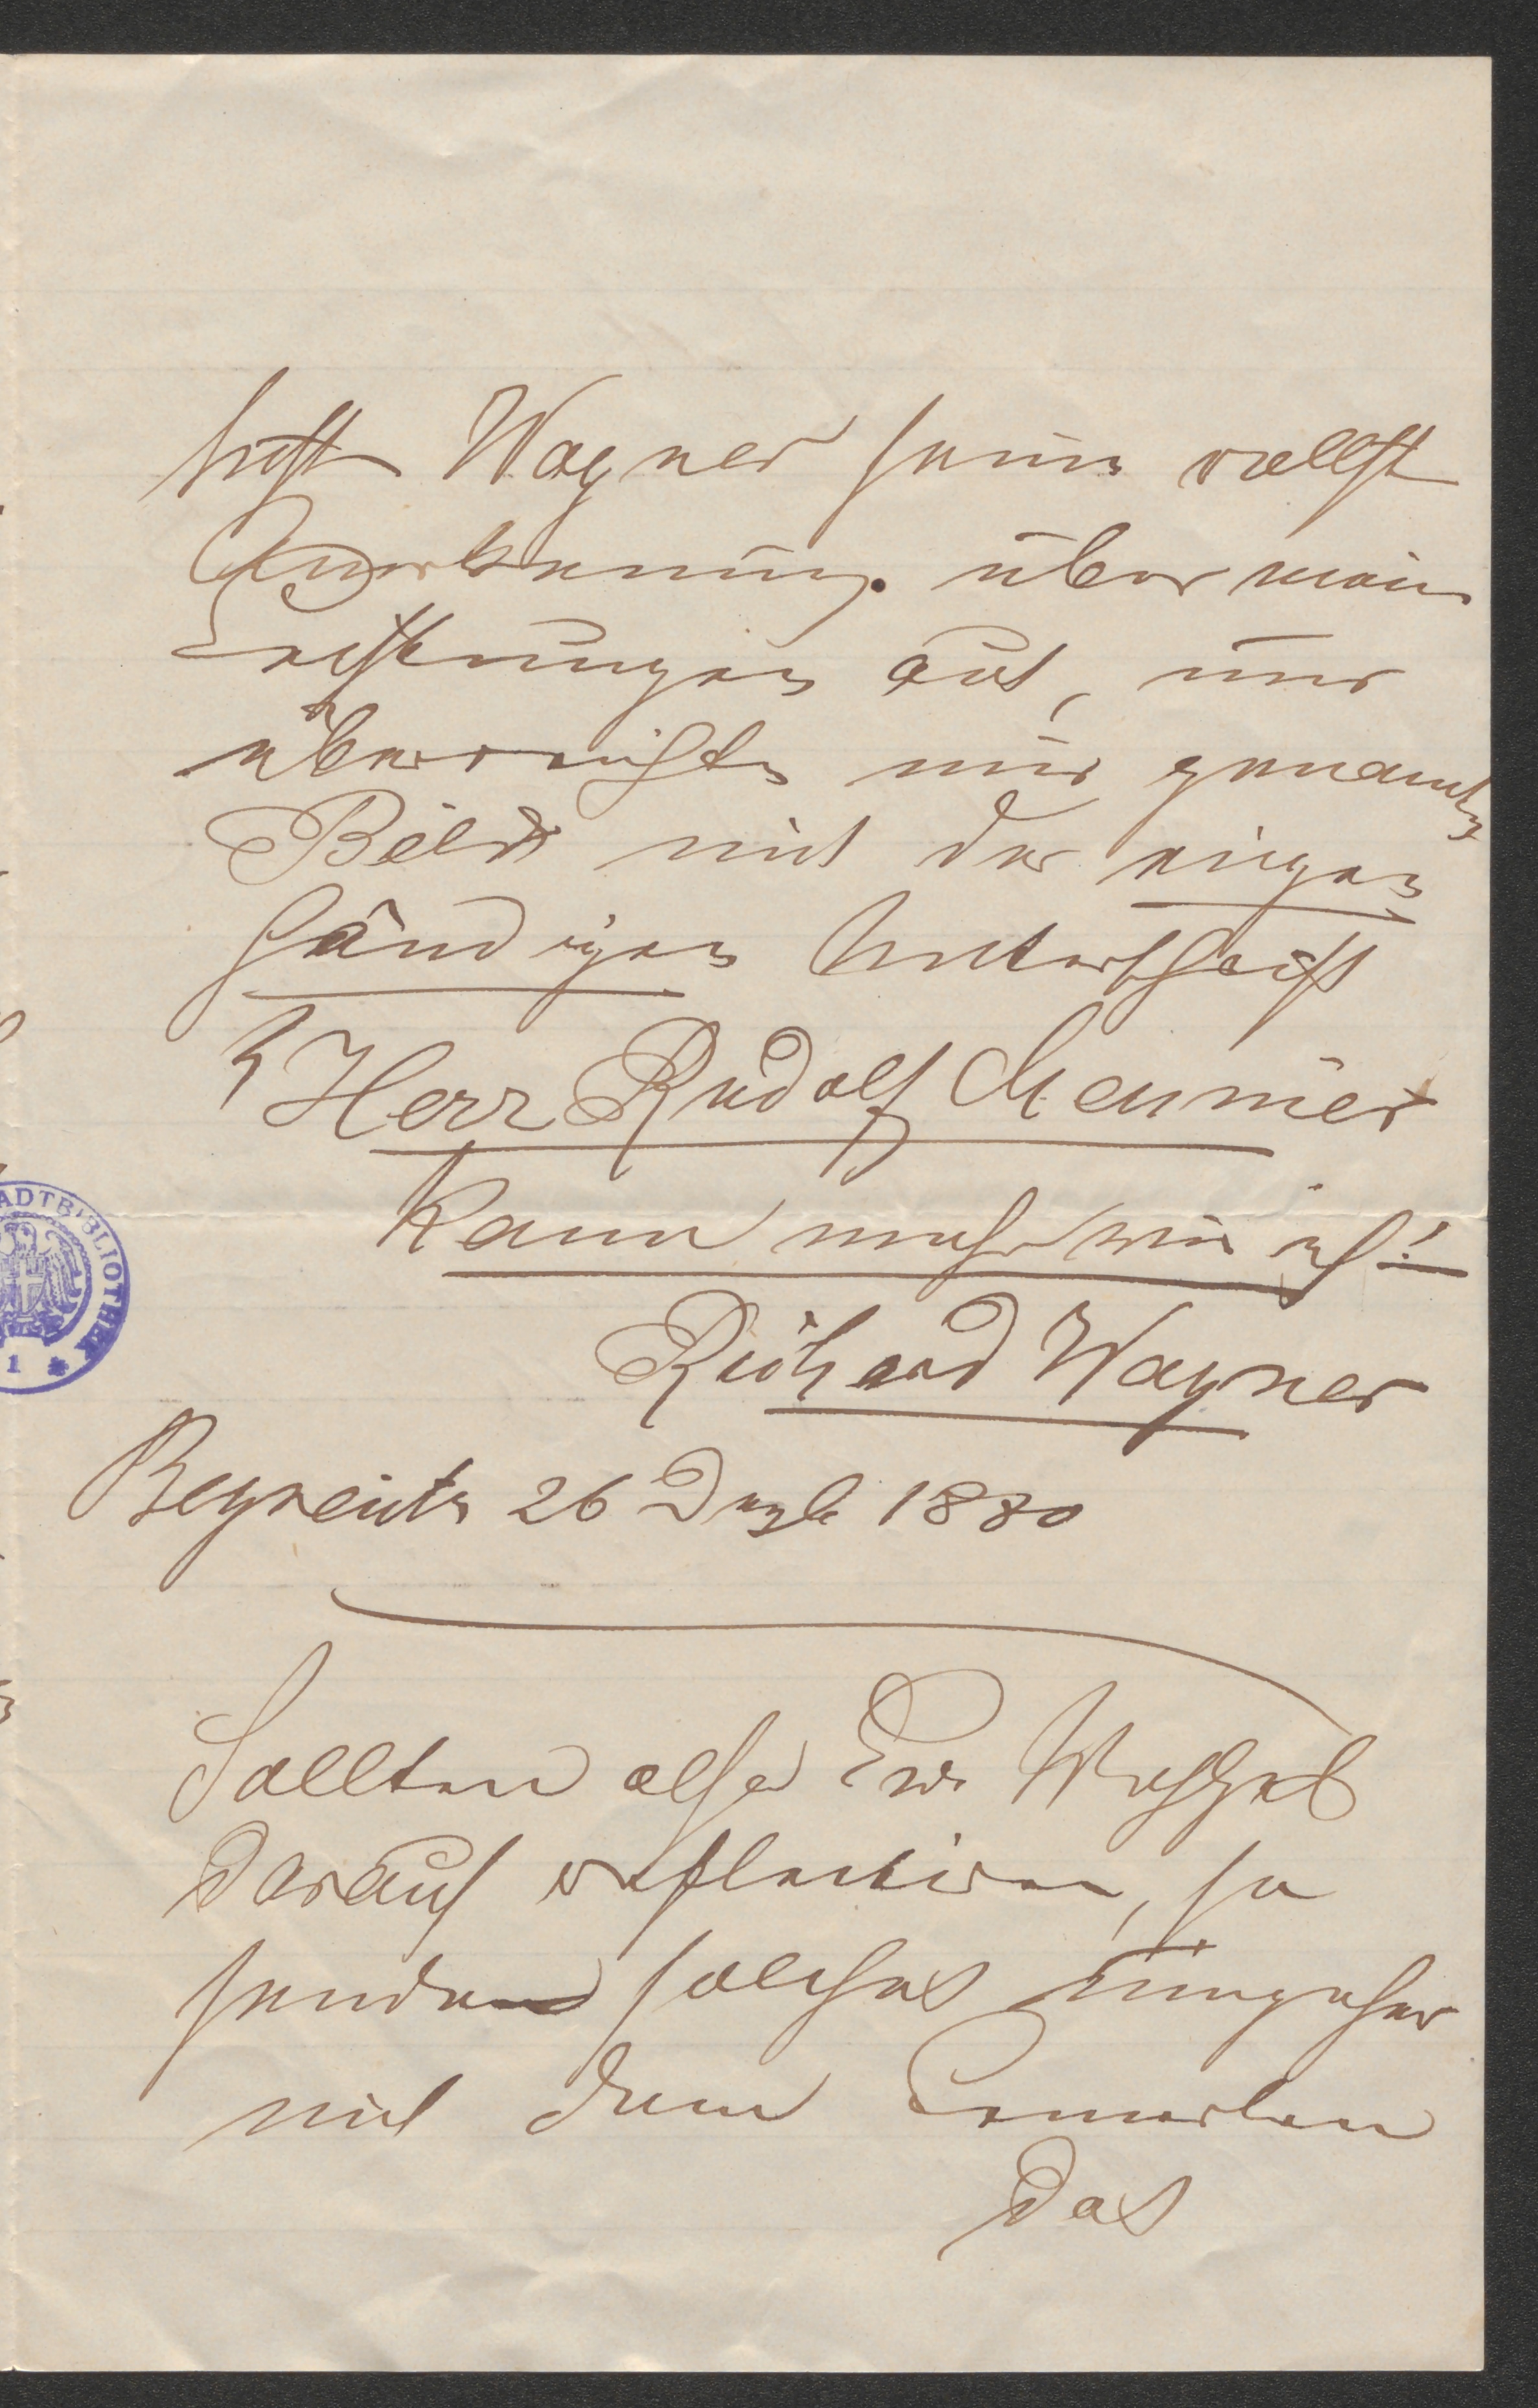 Wagner seine vollste
Anerkennung. über meine
Leistungen aus, und
überreichte mir genanntes
Bild mit der eigen
händigen Unterschrift
Herr Rudolf Meunier
Kann mehr wie ich!
Richard Wagner
Beyreuth 26 Dezb 1880
Sollten also Euer
darauf reflectiren, so
senden solches ungeher
mit dem Bemerken
das
ADTBIBLIOTHEK
1 *